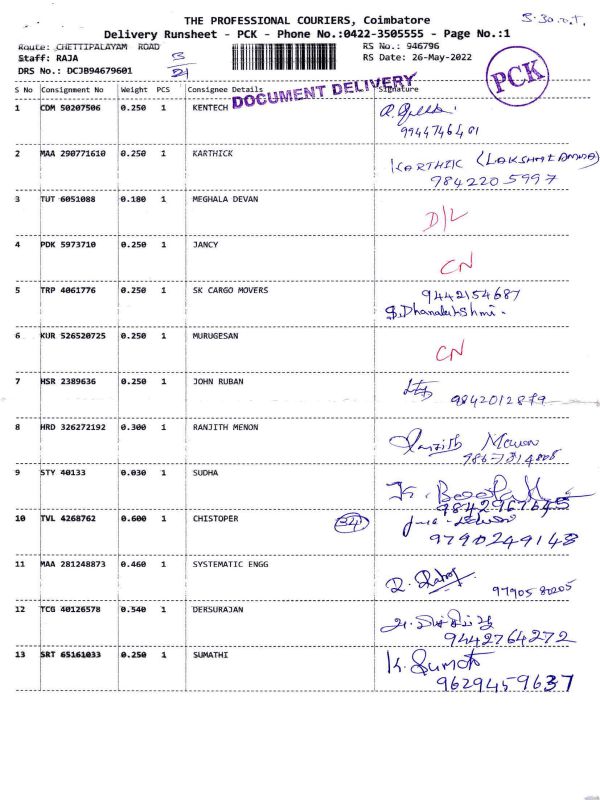 THE PROFESSIONAL COURIERS, Coimbatore
5.30.p.t.
Delivery Runsheet - PCK - Phone No.:0422-3505555 - Page No.:1
Route: CHETTIPALAYAM ROAD
RS No.: 946796
Staff: RAJA
RS Date: 26-May-2022
DRS No.: DCJB94679601
13/21
PCK
DOCUMENT DELIVERY
S No Consignment No Weight PCS Consignee Details Signature
1 CDM 50207506 0.250 1 KENTECH
9944746401
2 MAA 290771610 0.250 1 KARTHICK KARTHIK (LAKSHMI AMMA)
9842205997
3 TUT 6051088 0.180 1 MEGHALA DEVAN D/L
4 PDK 5973710 0.250 1 JANCY CN
5 TRP 4061776 0.250 1 SK CARGO MOVERS 9442154687
S.Dhanalakshmi.
6 KUR 526520725 0.250 1 MURUGESAN CN
7 HSR 2389636 0.250 1 JOHN RUBAN 9842012879
8 HRD 326272192 0.300 1 RANJITH MENON Ranjith Menon
9 STY 40133 0.030 1 SUDHA
9842967645
10 TVL 4268762 0.600 1 CHISTOPER 324
9790249148
11 MAA 281248873 0.460 1 SYSTEMATIC ENGG
9790580205
12 TCG 40126578 0.540 1 DERSURAJAN
9442764272
13 SRT 65161033 0.250 1 SUMATHI K. Sumathi
9629459637